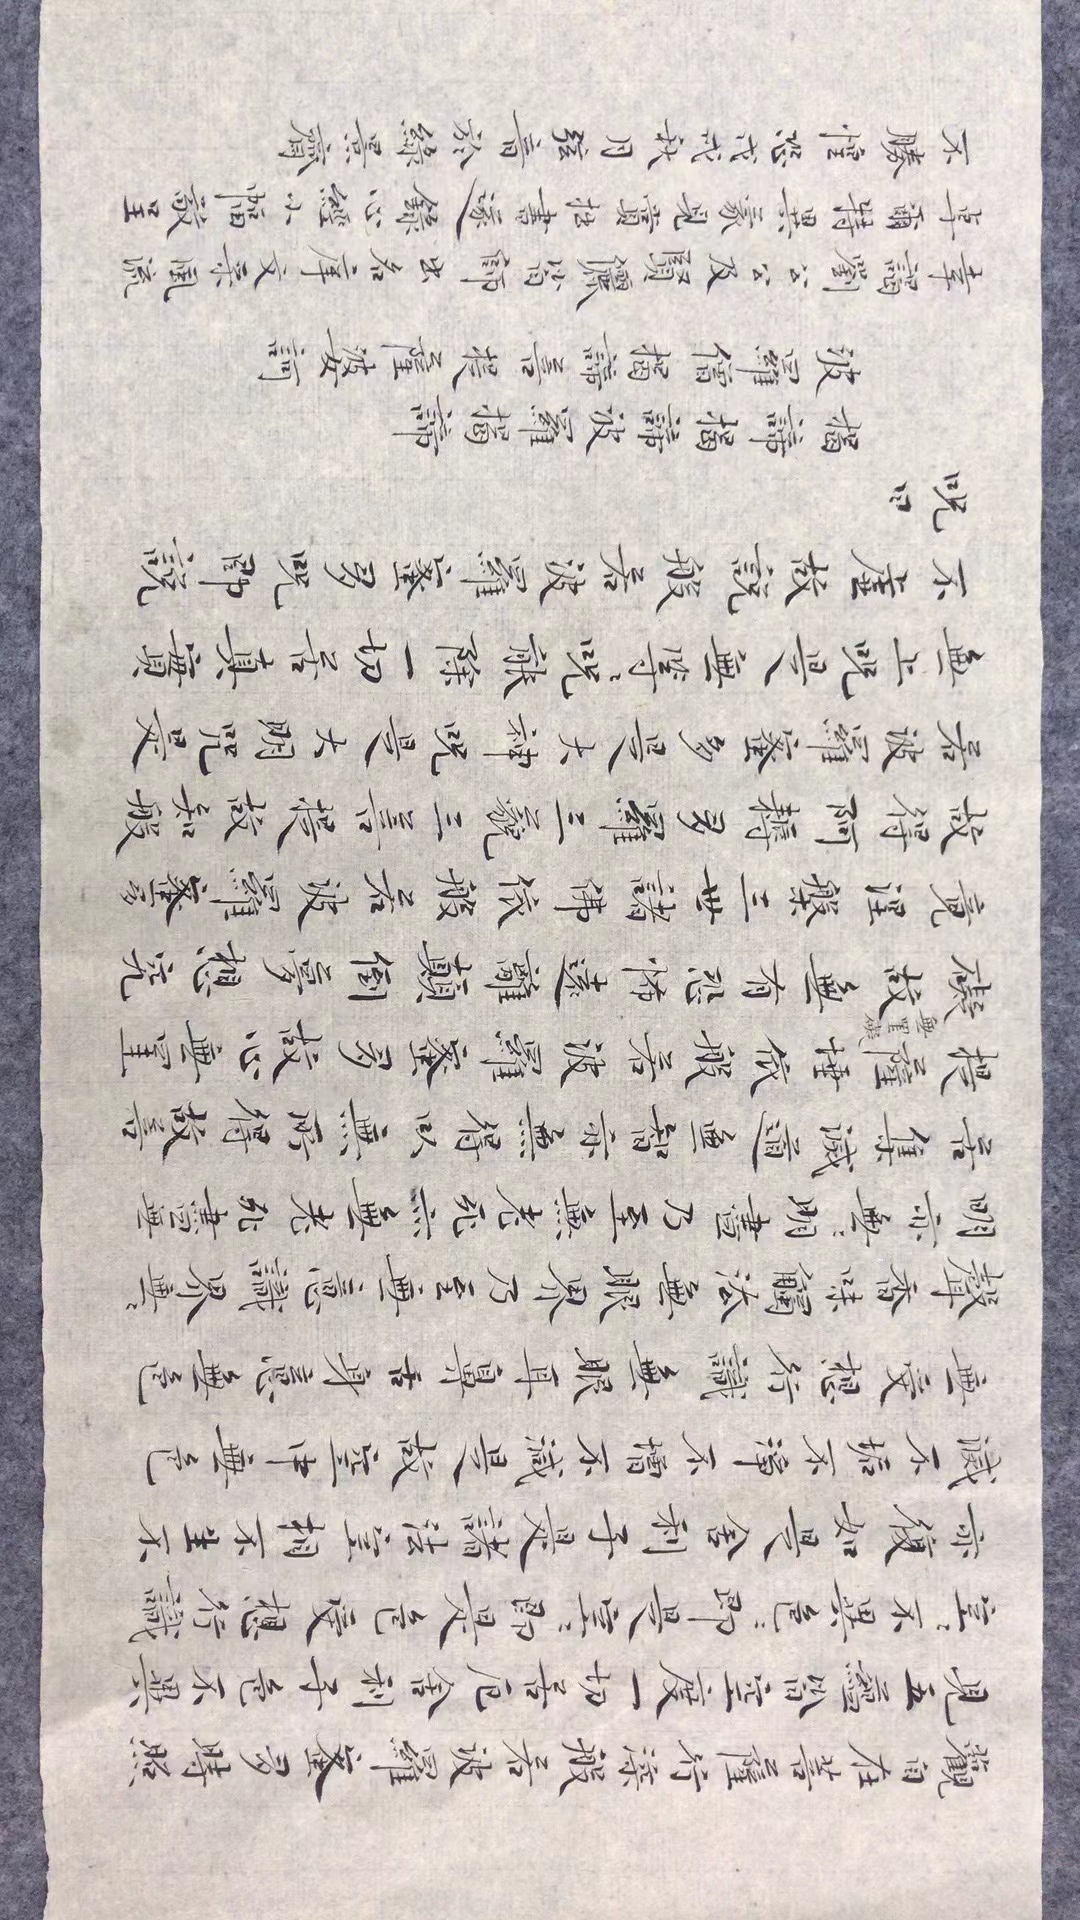 觀自在菩薩行深般若波羅蜜多時照
見五蘊皆空度一切苦厄舍利子色不異
空〻不異色〻即是空〻即是色受想行識
亦復如是舍利子是諸法空相不生不
滅不垢不淨不增不減是故空中無色
無受想行識無眼耳鼻舌身意無色
聲香味觸法無眼界乃至無意識界無〻
明亦無〻明盡乃至無老死亦無老死盡無
苦集滅道無智亦無得以無所得故菩
提薩埵依般若波羅蜜多故心無罣
無罣礙
礙故無有恐怖遠離顛倒夢想究
竟涅槃三世諸佛依般若波羅蜜多
故得阿耨多羅三藐三菩提故知般
若波羅蜜多是大神咒是大明咒是
無上咒是無等〻咒能除一切苦真實
不虛故說般若波羅蜜多咒即說
咒曰
揭諦揭諦波羅揭諦
波羅僧揭諦菩提薩婆訶
幸謁劉公〻及賢儷皆師出名庠文采風流
卓爾特異蒙見賞拙書遂錄心經小幅敬呈
不勝惶恐戊戌秋月發音於綠景齋